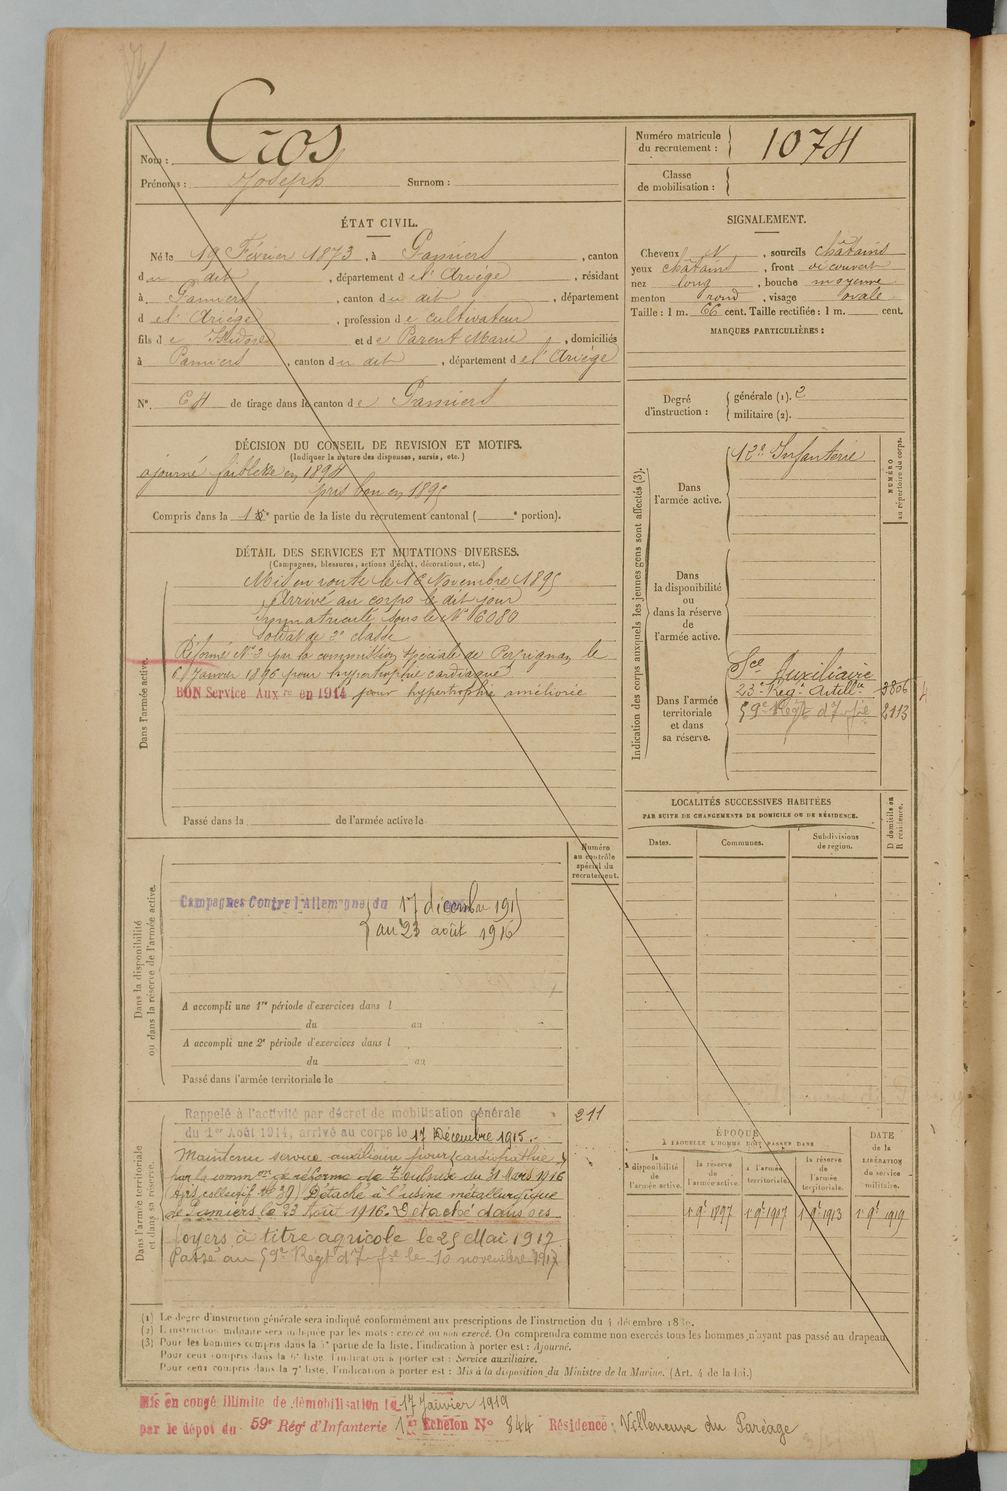 Nom : Cros
Prénoms : Joseph Surnom :
Numéro matricule du recrutement : 1074
Classe de mobilisation :
ÉTAT CIVIL.
Né le 19 Février 1873, à Pamiers, canton
du dit, département de l'Ariège, résidant
à Pamiers, canton du dit, département
de l'Ariège, profession de cultivateur
fils de Isidore et de Parent Marie, domiciliés
à Pamiers, canton du dit, département de l'Ariège
N°. 64 de tirage dans le canton de Pamiers
SIGNALEMENT.
Cheveux N, sourcils châtains
yeux châtains, front découvert
nez long, bouche moyenne
menton rond, visage ovale
Taille : 1 m. 66 cent. Taille rectifiée : 1 m. cent.
MARQUES PARTICULIÈRES :
Degré d'instruction : générale (1). 2
militaire (2).
DÉCISION DU CONSEIL DE REVISION ET MOTIFS.
(Indiquer la nature des dispenses, sursis, etc.)
ajourné faiblesse en 1894
pris bon en 1895
Compris dans la 1e partie de la liste du recrutement cantonal ( e portion).
DÉTAIL DES SERVICES ET MUTATIONS DIVERSES.
(Campagnes, blessures, actions d'éclat, décorations, etc.)
Dans l'armée active.
Mis en route le 16 Novembre 1895
Arrivé au corps le dit jour
Immatriculé sous le N° 6080
Soldat de 2e classe
Réformé N° 2 par la commission spéciale de Perpignan le
6 Janvier 1896 pour hypertrophie cardiaque
BON Service Auxre en 1914 pour hypertrophie améliorée
Passé dans la de l'armée active le
Indication des corps auxquels les jeunes gens sont affectés (3).
NUMÉRO au répertoire du corps.
Dans l'armée active.
12e Infanterie
Dans la disponibilité ou dans la réserve de l'armée active.
Dans l'armée territoriale et dans sa réserve.
Sce Auxiliaire
23e Régt Artillie 3806
59e Régt d'Infie 2113
LOCALITÉS SUCCESSIVES HABITÉES
PAR SUITE DE CHANGEMENTS DE DOMICILE OU DE RÉSIDENCE.
Dates. Communes. Subdivisions de région. D domicile ou R résidence.
Numéro au contrôle spécial du recrutement.
Dans la disponibilité ou dans la réserve de l'armée active.
Campagnes Contre l'Allemagne du 17 décembre 1915
au 23 août 1916
A accompli une 1re période d'exercices dans l
du au
A accompli une 2e période d'exercices dans l
du au
Passé dans l'armée territoriale le
Dans l'armée territoriale et dans sa réserve.
Rappelé à l'activité par décret de mobilisation générale 211
du 1er Août 1914, arrivé au corps le 17 Décembre 1915.
Maintenu service auxiliaire pour cardiopathie
par la common de réforme de Toulouse du 31 Mars 1916
(avis collectif N° 39) Détaché à l'usine métallurgique
de Pamiers le 23 Août 1916. Détaché dans ses
foyers à titre agricole le 25 Mai 1917
Passé au 59e Régt d'Infie le 10 novembre 1917
ÉPOQUE
À LAQUELLE L'HOMME DOIT PASSER DANS
DATE de la LIBÉRATION du service militaire.
la disponibilité de l'armée active. la réserve de l'armée active. l'armée territoriale. la réserve de l'armée territoriale.
1r 9e 1897 1r 9e 1907 1r 9e 1913 1r 9e 1919
(1) Le degré d'instruction générale sera indiqué conformément aux prescriptions de l'instruction du 4 décembre 1889.
(2) L'instruction militaire sera indiquée par les mots : exercé ou non exercé. On comprendra comme non exercés tous les hommes n'ayant pas passé au drapeau.
(3) Pour les hommes compris dans la 5e partie de la liste, l'indication à porter est : Ajourné.
Pour ceux compris dans la 6e liste, l'indication à porter est : Service auxiliaire.
Pour ceux compris dans la 7e liste, l'indication à porter est : Mis à la disposition du Ministre de la Marine. (Art. 4 de la loi.)
Mis en congé illimité de démobilisation le 17 Janvier 1919
par le dépôt du 59e Régt d'Infanterie 1er Echelon N° 844 Résidence : Villeneuve du Paréage